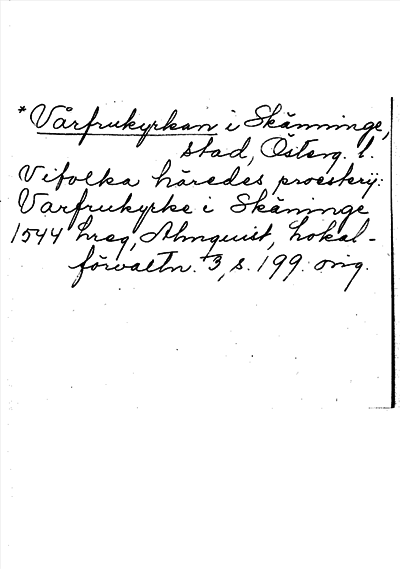 *Vårfrukyrkan i Skänninge,
stad, Österg. l.
Vifolka häredes, proeskrij:
Varfrukyrke i Skäninge
1544 hreg, Almquist, Lokal-
förvaltn. 3, s. 199. orig.